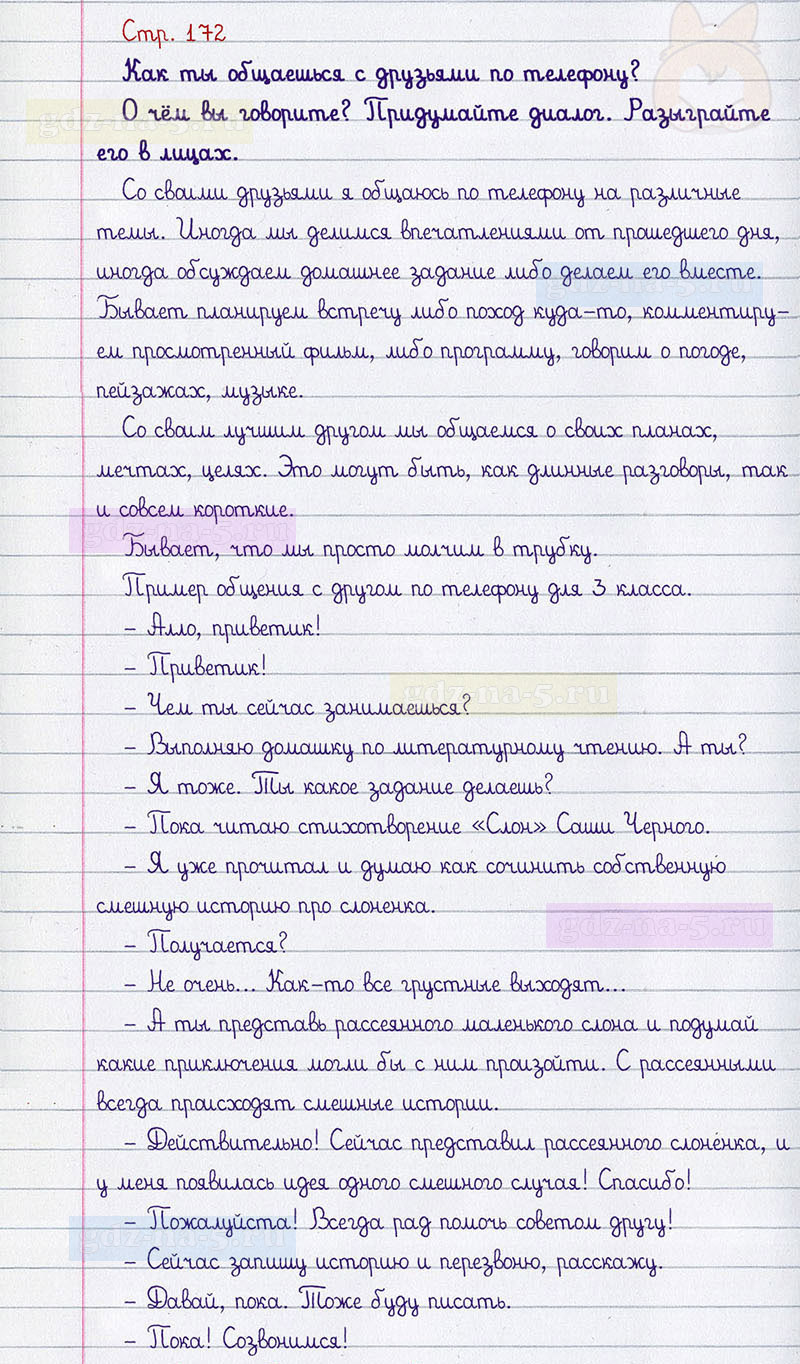 Стр. 172
Как ты общаешься с друзьями по телефону?
О чём вы говорите? Придумайте диалог. Разыграйте
его в лицах.
Со своими друзьями я общаюсь по телефону на различные
темы. Иногда мы делимся впечатлениями от прошедшего дня,
иногда обсуждаем домашнее задание либо делаем его вместе.
Бывает планируем встречу либо поход куда-то, комментиру-
ем просмотренный фильм, либо программу, говорим о погоде,
пейзажах, музыке.
Со своим лучшим другом мы общаемся о своих планах,
мечтах, целях. Это могут быть, как длинные разговоры, так
и совсем короткие.
Бывает, что мы просто молчим в трубку.
Пример общения с другом по телефону для 3 класса.
– Алло, приветик!
– Приветик!
– Чем ты сейчас занимаешься?
– Выполняю домашку по литературному чтению. А ты?
– Я тоже. Ты какое задание делаешь?
– Пока читаю стихотворение «Слон» Саши Черного.
– Я уже прочитал и думаю как сочинить собственную
смешную историю про слоненка.
– Получается?
– Не очень... Как-то все грустные выходят...
– А ты представь рассеянного маленького слона и подумай
какие приключения могли бы с ним произойти. С рассеянными
всегда происходят смешные истории.
– Действительно! Сейчас представил рассеянного слонёнка, и
у меня появилась идея одного смешного случая! Спасибо!
– Пожалуйста! Всегда рад помочь советом другу!
– Сейчас запишу историю и перезвоню, расскажу.
– Давай, пока. Тоже буду писать.
– Пока! Созвонимся!
gdz-na-5.ru
gdz-na-5.ru
gdz-na-5.ru
gdz-na-5.ru
gdz-na-5.ru
gdz-na-5.ru